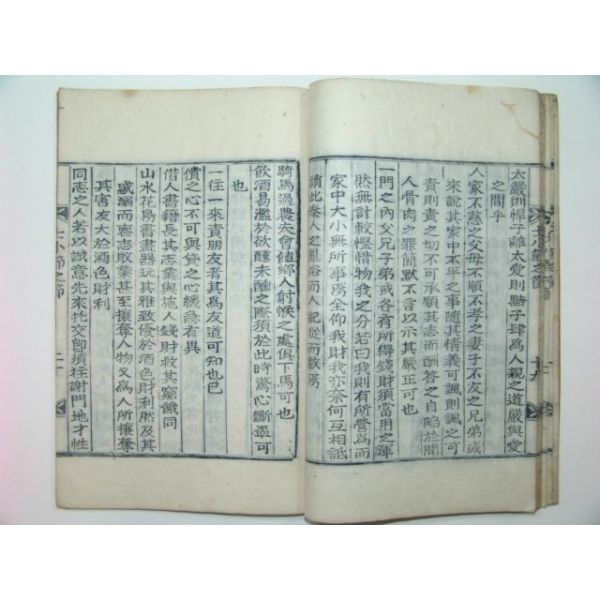 太嚴則悍子離太愛則驕子肆爲人親之道嚴與愛
之間乎
人家不慈之父母不順不孝之妻子不友之兄弟或
來說其家中不平之事隨其情義可諷則諷之可
責則責之切不可承順其志而酬答之自陷於間
人骨肉之罪簡默不言以示其嚴正可也
一門之內父兄子弟或各有所得錢財須當用之渾
然無計較慳惜物我之分若曰我則有所營爲而
家中大小無所事焉全仰我財我亦奈何互相詆
騎馬過農夫會饁鄉人射帿之處俱下馬可也
飮酒易濫於欲醺未醺之際須於此時驚心斷盃可
也
一往一來責朋友者其爲友道可知也已
債之心不可與貸之心緩急有異
借人書籍長其志業與施人錢財救其窮餓同
山水花鳥書畫器玩其雅致優於酒色財利然及其
惑溺而喪志敗業甚至攘奪人物又爲人所攘奪
其害反大於酒色財利
同志之人若以誠意先來托交卽須往謝門地才性
士小節之節
二十